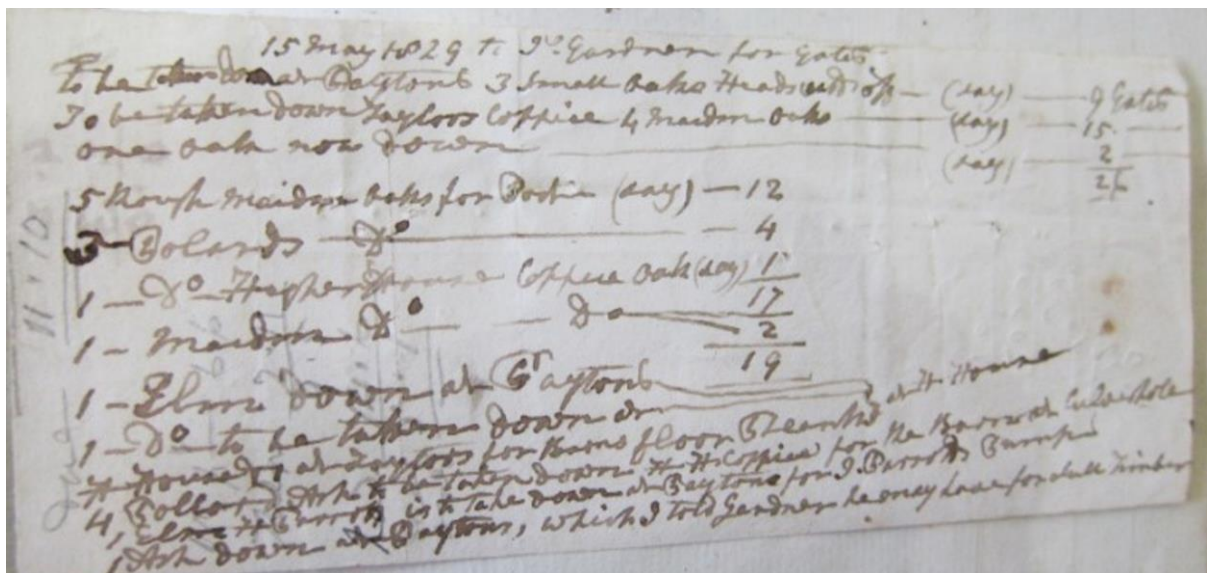 15 May 1829 to Jo. Gardner for Gates.
To be taken down at Paytons 3 Small oaks Heads off — (say) — 9 Gates
To be taken down Taylors Coppice 4 Maiden oaks — (say) — 15
one oak now down — (say) 2
26
5 Rough Maiden oaks for (say) — 12
3 Polards — Do — 4
1 — Do — Higher House Coppice oak (say) 1
17
1 — Maiden Do — Do — 2
19
1 — Elm down at Paytons
1 — Do to be taken down at
H House Do at Taylors for Barns floor Pleanks at H House
4, Pollard Ash to be taken down H H Coppice for the Barn at
1, Elm is to take down at Paytons for J Parrotts Pump
1 Ash down at Paytons, which I told Gardner he may have for timber
11 . 10